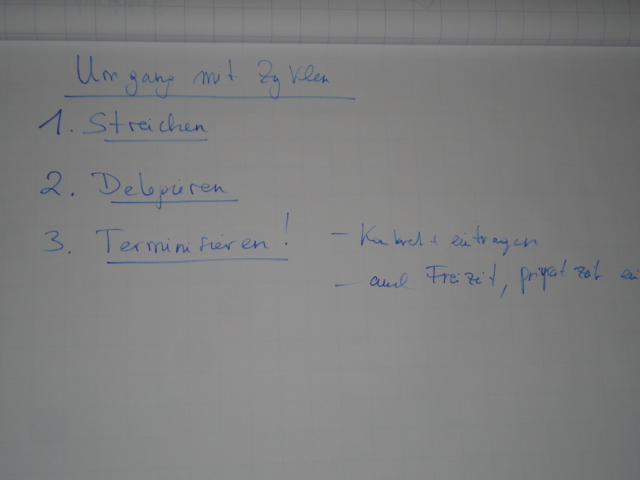 Umgang mit Zyklen
1. Streichen
2. Delegieren
3. Terminisieren!
– Konkret eintragen
– auch Freizeit, privat zeit ein